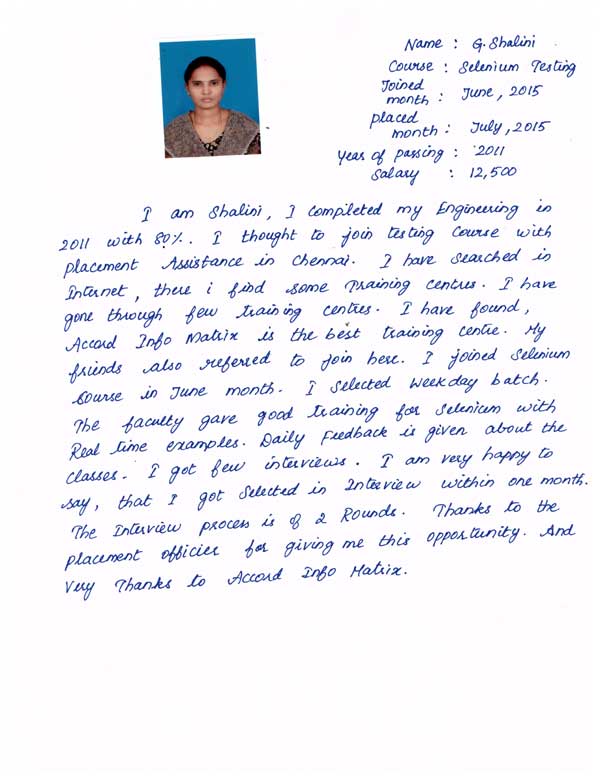 Name : G. Shalini
Course : Selenium Testing
Joined
month : June, 2015
placed
month : July, 2015
Year of passing : 2011
Salary : 12,500
I am Shalini, I completed my Engineering in
2011 with 80%. I thought to join testing Course with
placement Assistance in Chennai. I have searched in
Internet, there i find some Training centres. I have
gone through few training centres. I have found,
Accord Info Matrix is the best training centre. My
friends also referred to join here. I joined Selenium
Course in June month. I selected Weekday batch.
The faculty gave good training for Selenium with
Real time examples. Daily Feedback is given about the
classes. I got few interviews. I am very happy to
say, that I got Selected in Interview within one month.
The Interview process is of 2 Rounds. Thanks to the
placement officier for giving me this opportunity. And
Very Thanks to Accord Info Matrix.